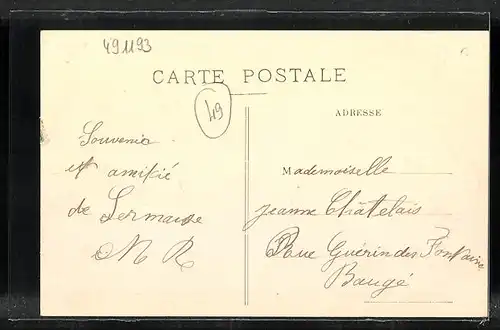 491193
CARTE POSTALE
49
ADRESSE
Souvenir
et amitié
de Lermaise
M R
Mademoiselle
Jeanne Châtelais
Rue Guérin des Fontaine
Baugé